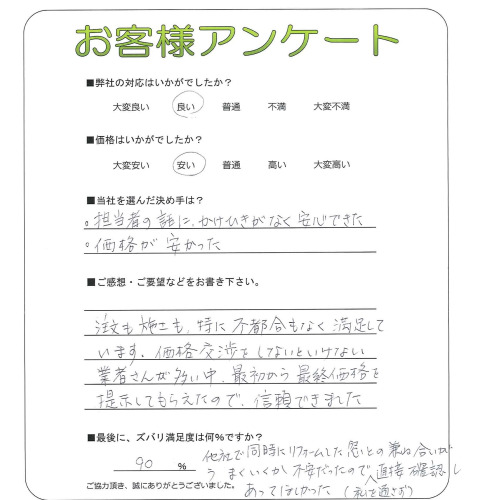 お客様アンケート
■弊社の対応はいかがでしたか？
大変良い 良い 普通 不満 大変不満
■価格はいかがでしたか？
大変安い 安い 普通 高い 大変高い
■当社を選んだ決め手は？
。担当者の話に、かけひきがなく安心できた
。価格が安かった
■ご感想・ご要望などをお書き下さい。
注文も施工も、特に不都合もなく満足して
います。価格交渉をしないといけない
業者さんが多い中、最初から最終価格を
提示してもらえたので、信頼できました
■最後に、ズバリ満足度は何%ですか？
90 %
他社で同時にリフォームした窓との兼ね合いが
うまくいくか不安だったので、直接確認し
あってほしかった（私を通さず）
ご協力頂き、誠にありがとうございました。